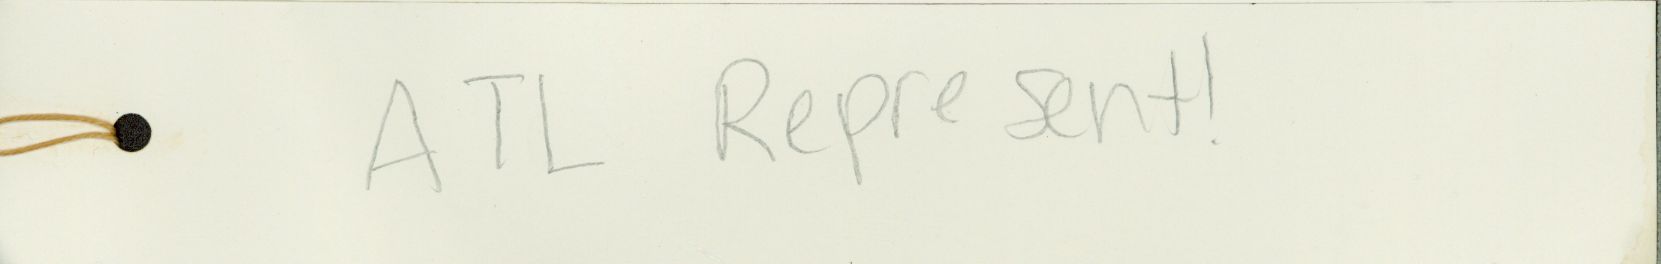 ATL Represent!